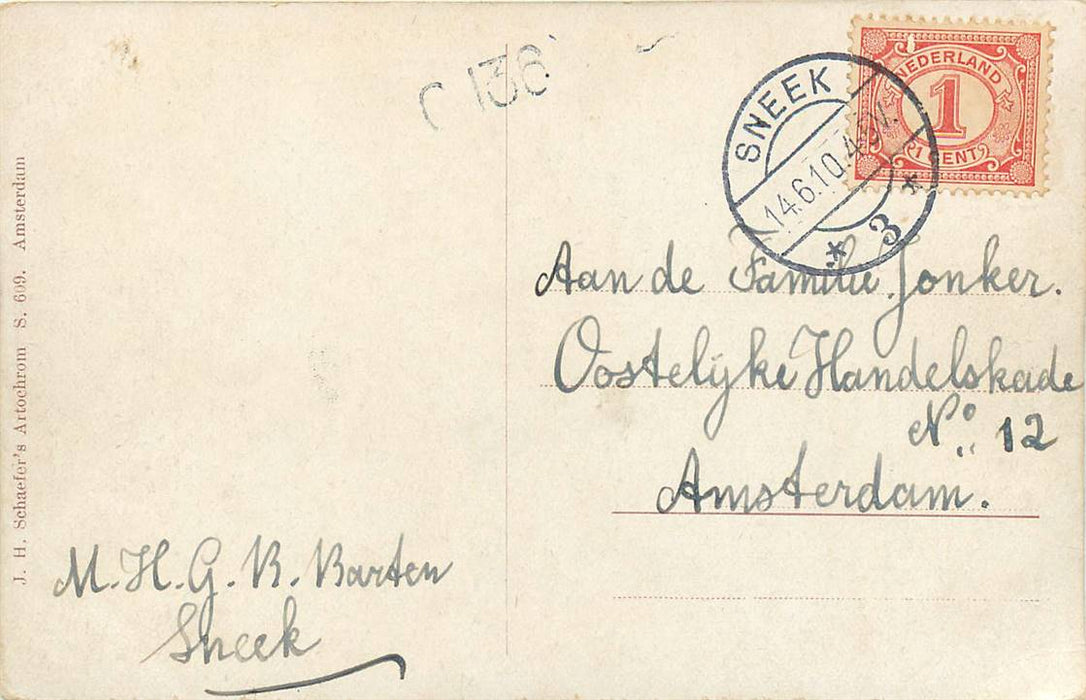 C 136
NEDERLAND
1
1 CENT
SNEEK
14.6.10.4-5V.
* 3 *
Aan de Familie Jonker.
Oostelijke Handelskade
No. 12
Amsterdam.
M. H. G. B. Barten
Sneek
J. H. Schaefer's Artochrom S. 609. Amsterdam